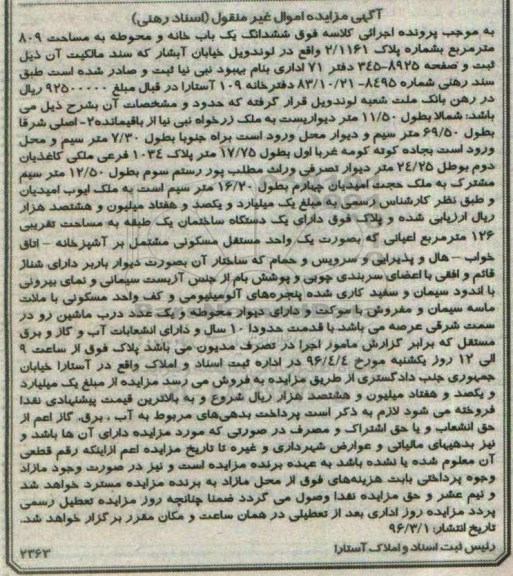 آگهی مزایده اموال غیر منقول (اسناد رهنی)
به موجب پرونده اجرائی کلاسه فوق ششدانگ یک باب خانه و محوطه به مساحت ۸۰۹
مترمربع بشماره پلاک ۲/۱۱۶۱ واقع در لوندویل خیابان آبشار که سند مالکیت آن ذیل
ثبت و صفحه ۸۹۲۵–۳۴۵ دفتر ۷۱ اداری بنام بهبود نبی نیا ثبت و صادر شده است طبق
سند رهنی شماره ۸۴۹۵–۸۳/۱۰/۲۱ دفترخانه ۱۰۹ آستارا در قبال مبلغ ۹۲۵۰۰۰۰۰ ریال
در رهن بانک ملت شعبه لوندویل قرار گرفته که حدود و مشخصات آن بشرح ذیل می
باشد: شمالا بطول ۱۱/۵۰ متر دیواریست به ملک زرخواه نبی نیا از باقیمانده ۲– اصلی شرقا
بطول ۶۹/۵۰ متر سیم و دیوار محل ورود است براه جنوبا بطول ۷/۳۰ متر سیم و محل
ورود است بجاده کوته کومه غربا اول بطول ۱۷/۷۵ متر پلاک ۱۰۳۴ فرعی ملکی کاغذیان
دوم بوطل ۲۴/۲۵ متر دیوار تصرفی وراث مطلب پور رستم سوم بطول ۱۲/۵۰ متر سیم
مشترک به ملک حجت امیدیان چهارم بطول ۱۶/۲۰ متر سیم است به ملک ایوب امیدیان
و طبق نظر کارشناس رسمی به مبلغ یک میلیارد و یکصد و هفتاد میلیون و هشتصد هزار
ریال ارزیابی شده و پلاک فوق دارای یک دستگاه ساختمان یک طبقه به مساحت تقریبی
۱۲۶ مترمربع اعیانی که بصورت یک واحد مستقل مسکونی مشتمل بر آشپزخانه – اتاق
خواب – هال و پذیرایی و سرویس و حمام که ساختار آن بصورت دیوار باربر دارای شناژ
قائم و افقی با اعضای سربندی چوبی و پوشش بام از جنس آزبست سیمانی و نمای بیرونی
با اندود سیمان و سفید کاری شده پنجره‌های آلومینیومی و کف واحد مسکونی با ملات
ماسه سیمان و مفروش با موکت و دارای دیوار محوطه و یک عدد درب ماشین رو در
سمت شرقی عرصه می باشد با قدمت حدودا ۱۰ سال و دارای انشعابات آب و گاز و برق
مستقل که برابر گزارش مامور اجرا در تصرف مدیون می باشد پلاک فوق از ساعت ۹
الی ۱۲ روز یکشنبه مورخ ۹۶/۴/۴ در اداره ثبت اسناد و املاک واقع در آستارا خیابان
جمهوری جنب دادگستری از طریق مزایده به فروش می رسد مزایده از مبلغ یک میلیارد
و یکصد و هفتاد میلیون و هشتصد هزار ریال شروع و به بالاترین قیمت پیشنهادی نقدا
فروخته می شود لازم به ذکر است پرداخت بدهی‌های مربوط به آب ، برق، گاز اعم از
حق انشعاب و یا حق اشتراک و مصرف در صورتی که مورد مزایده دارای آن ها باشد و
نیز بدهیهای مالیاتی و عوارض شهرداری و غیره تا تاریخ مزایده اعم ازاینکه رقم قطعی
آن معلوم شده یا نشده باشد به عهده برنده مزایده است و نیز در صورت وجود مازاد
وجوه پرداختی بابت هزینه‌های فوق از محل مازاد به برنده مزایده مسترد خواهد شد
و نیم عشر و حق مزایده نقدا وصول می گردد ضمنا چنانچه روز مزایده تعطیل رسمی
گردد مزایده روز اداری بعد از تعطیلی در همان ساعت و مکان مقرر برگزار خواهد شد.
تاریخ انتشار: ۹۶/۳/۱
رئیس ثبت اسناد و املاک آستارا
۲۳۶۳